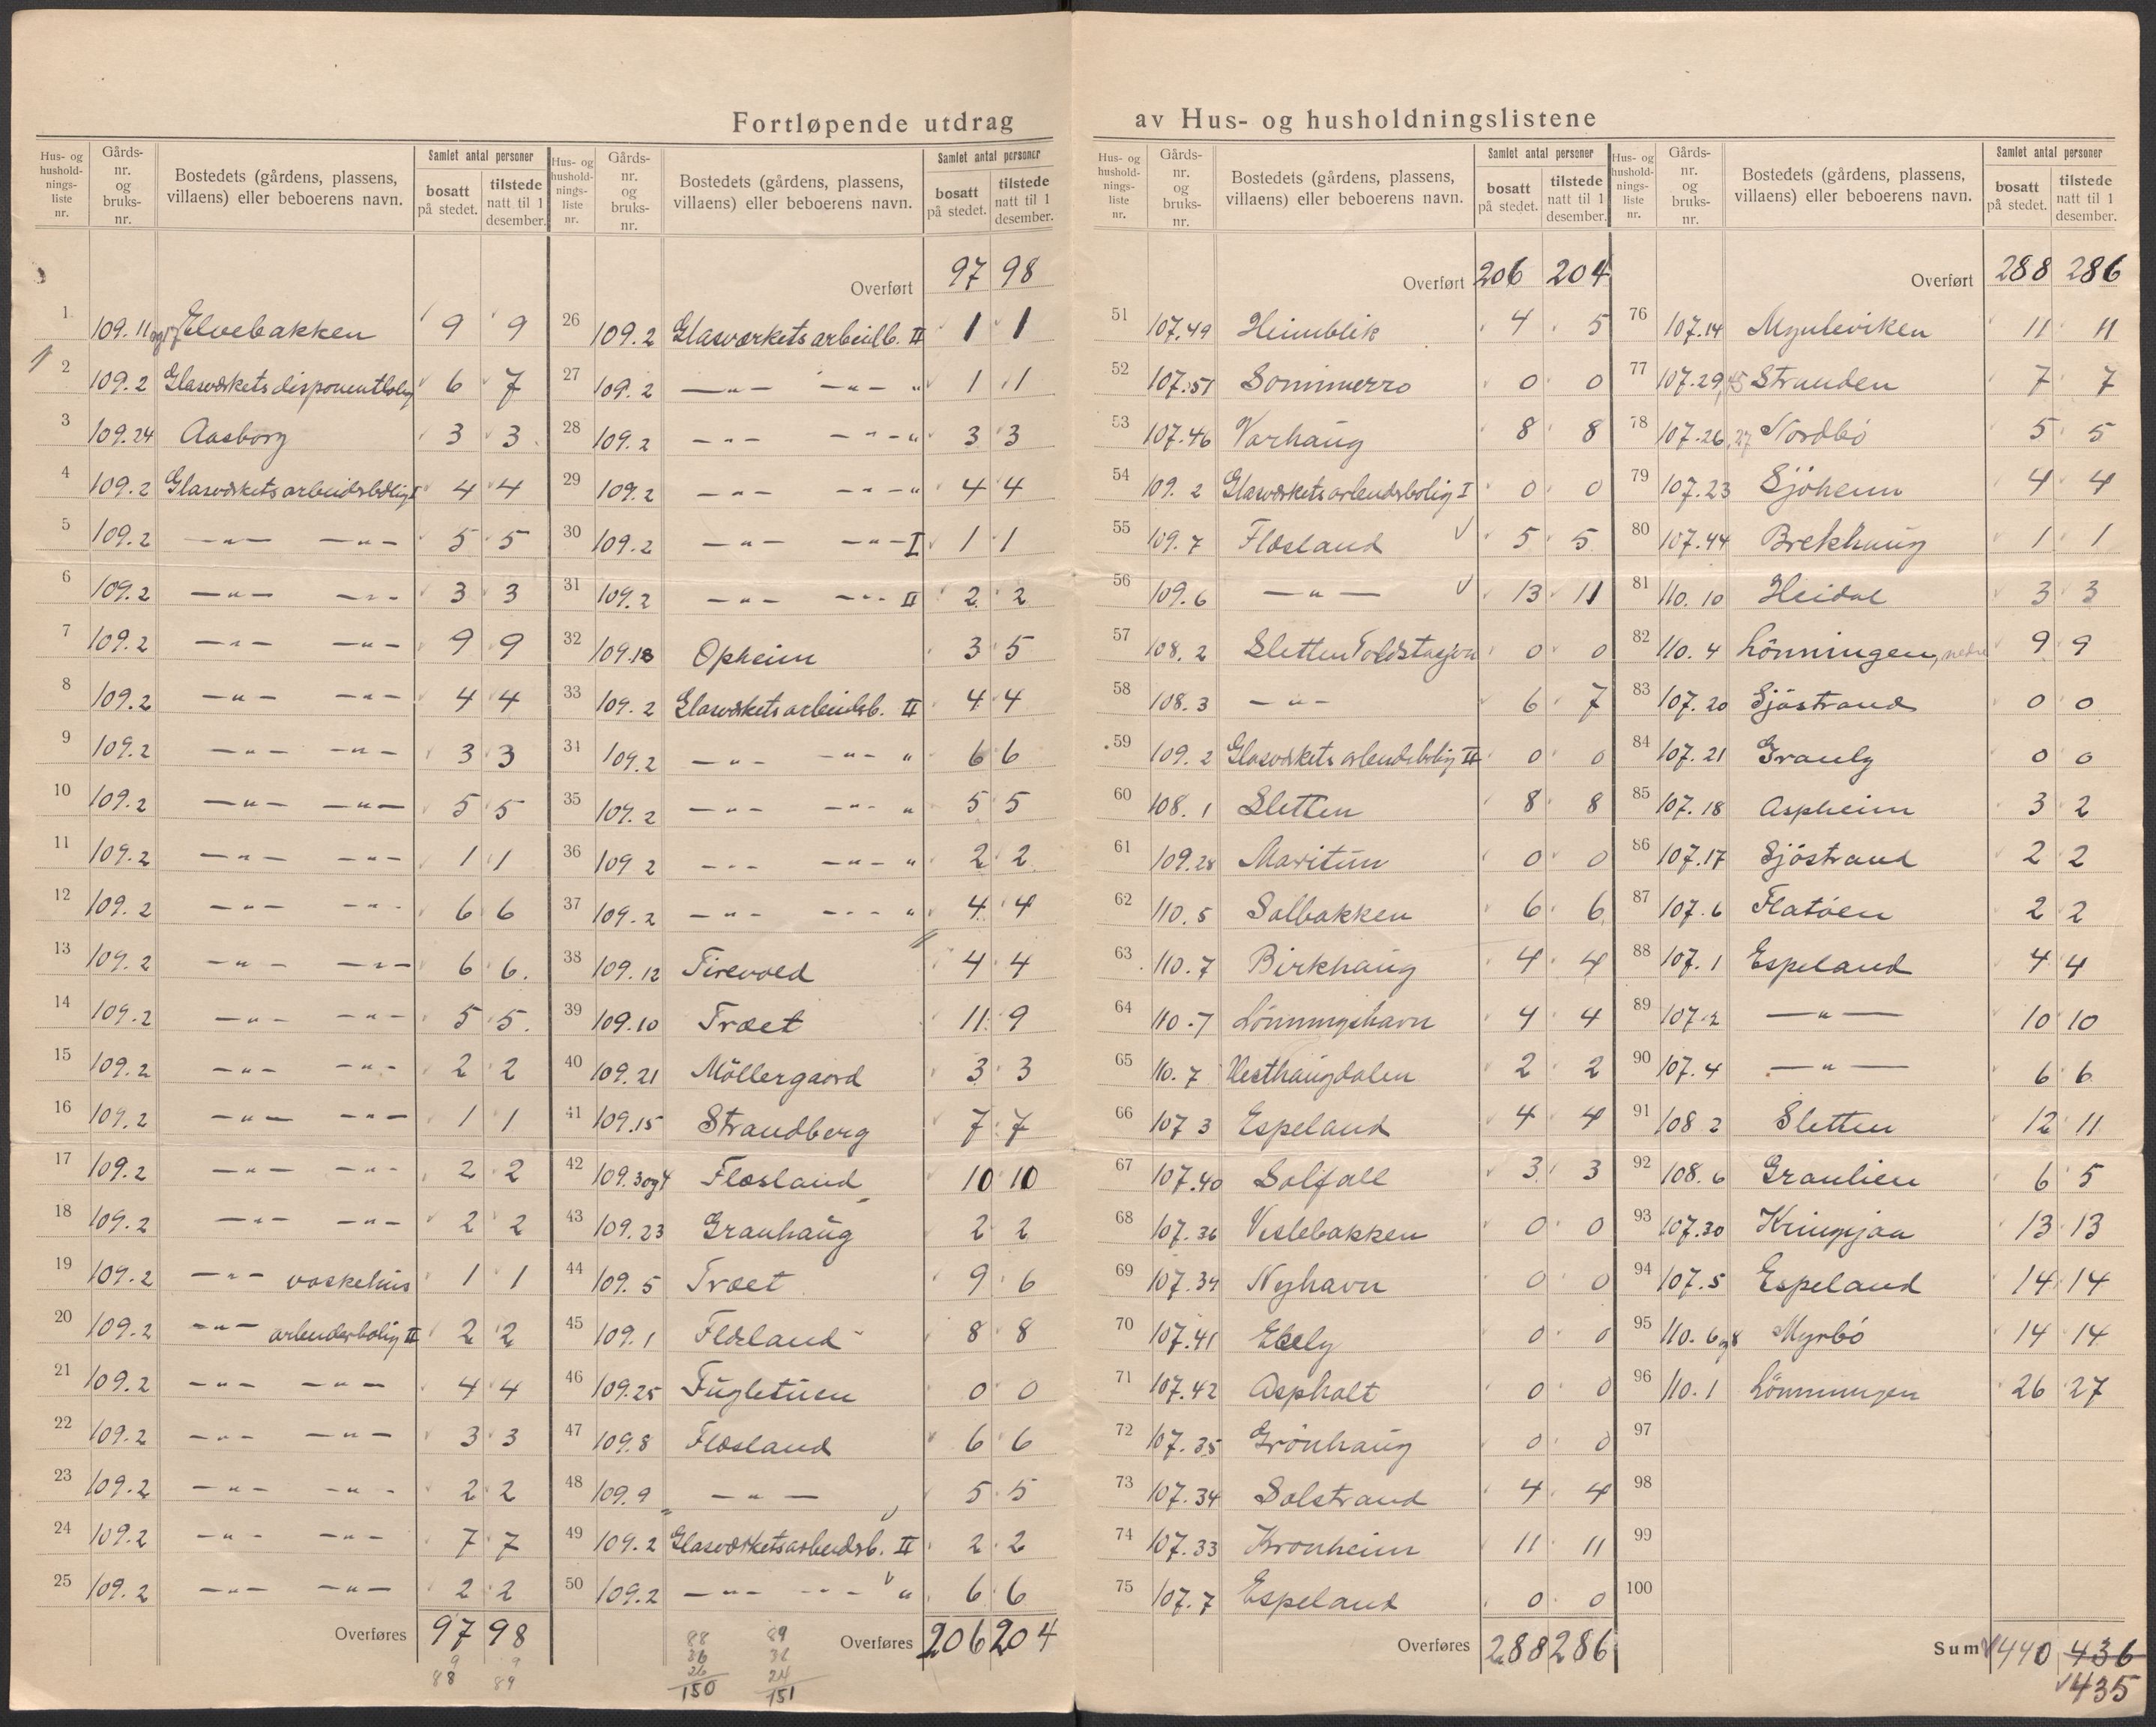 Fortløpende utdrag av Hus- og husholdningslistene
Hus- og hushold-nings-liste nr. | Gårds-nr. og bruks-nr. | Bostedets (gårdens, plassens, villaens) eller beboerens navn. | Samlet antal personer | bosatt på stedet. | tilstede natt til 1 desember.
1 109.11 og 17 Elvebakken 9 9
2 109.2 Glasværkets disponentbolig 6 7
3 109.24 Aasborg 3 3
4 109.2 Glasværkets arbeidsbolig I 4 4
5 109.2 —"— —"— 5 5
6 109.2 —"— —"— 3 3
7 109.2 —"— —"— 9 9
8 109.2 —"— —"— 4 4
9 109.2 —"— —"— 3 3
10 109.2 —"— —"— 5 5
11 109.2 —"— —"— 1 1
12 109.2 —"— —"— 6 6
13 109.2 —"— —"— 6 6.
14 109.2 —"— —"— 5 5.
15 109.2 —"— —"— 2 2
16 109.2 —"— —"— 1 1
17 109.2 —"— —"— 2 2
18 109.2 —"— —"— 2 2
19 109.2 —"— vaskehus 1 1
20 109.2 —"— arbeiderbolig II 2 2
21 109.2 —"— —"— 4 4
22 109.2 —"— —"— 3 3
23 109.2 —"— —"— 2 2
24 109.2 —"— —"— 7 7
25 109.2 —"— —"— 2 2
Overføres 97 98
9 9
88 89
Hus- og hushold-nings-liste nr. | Gårds-nr. og bruks-nr. | Bostedets (gårdens, plassens, villaens) eller beboerens navn. | Samlet antal personer | bosatt på stedet. | tilstede natt til 1 desember.
Overført 97 98
26 109.2 Glasværkets arbeidb. II 1 1
27 109.2 —"— —"— " 1 1
28 109.2 —"— —"— " 3 3
29 109.2 —"— —"— " 4 4
30 109.2 —"— —"— I 1 1
31 109.2 —"— —"— II 2 2
32 109.18 Opheim 3 5
33 109.2 Glasværkets arbeidsb. II 4 4
34 109.2 —"— —"— " 6 6
35 109.2 —"— —"— " 5 5
36 109 2 —"— —"— " 2 2
37 109.2 —"— —"— " 4 4
38 109.12 Firevold 4 4
39 109.10 Træet 11 9
40 109.21 Möllergaard 3 3
41 109.15 Strandberg 7 7
42 109.3 og 4 Flæsland 10 10
43 109.23 Granhaug 2 2
44 109.5 Træet 9 6
45 109.1 Flæsland 8 8
46 109.25 Fugletuen 0 0
47 109.8 Flæsland 6 6
48 109.9 —"— 5 5
49 109.2 Glasværkets arbeidsb. II 2 2
50 109.2 —"— —"— " 6 6
Overføres 206 204
88 89
36 36
26 24
150 151
Hus- og hushold-nings-liste nr. | Gårds-nr. og bruks-nr. | Bostedets (gårdens, plassens, villaens) eller beboerens navn. | Samlet antal personer | bosatt på stedet. | tilstede natt til 1 desember.
Overført 206 204
51 107.49 Heimblik 4 5
52 107.51 Sommerro 0 0
53 107.46 Varhaug 8 8
54 109.2 Glasværkets arbeidsbolig I 0 0
55 109.7 Flæsland 5 5
56 109.6 —"— 13 11
57 108.2 Sletten Toldstasjon 0 0
58 108.3 —"— 6 7
59 109.2 Glasværkets arbeidsbolig II 0 0
60 108.1 Sletten 8 8
61 109.28 Maritun 0 0
62 110.5 Solbakken 6 6
63 110.7 Birkhaug 4 4
64 110.7 Lönningshavn 4 4
65 110.7 Vesthaugdalen 2 2
66 107 3 Espeland 4 4
67 107.40 Solfall 3 3
68 107.36 Veslebakken 0 0
69 107.39 Nyhavn 0 0
70 107.41 Ebely 0 0
71 107.42 Aspholt 0 0
72 107.35 Grönhaug 0 0
73 107.34 Solstrand 4 4
74 107.33 Kronheim 11 11
75 107.7 Espeland 0 0
Overføres 288 286
Hus- og hushold-nings-liste nr. | Gårds-nr. og bruks-nr. | Bostedets (gårdens, plassens, villaens) eller beboerens navn. | Samlet antal personer | bosatt på stedet. | tilstede natt til 1 desember.
Overført 288 286
76 107.14 Mynteviken 11 11
77 107.29,45 Stranden 7 7
78 107.26,27 Nordbö 5 5
79 107.23 Sjöheim 4 4
80 107.44 Brekhaug 1 1
81 110.10 Heidal 3 3
82 110.4 Lönningen, nedre 9 9
83 107.20 Sjöstrand 0 0
84 107.21 Granly 0 0
85 107.18 Aspheim 3 2
86 107.17 Sjöstrand 2 2
87 107.6 Flatöen 2 2
88 107.1 Espeland 4 4
89 107.2 —"— 10 10
90 107.4 —"— 6 6
91 108 2 Sletten 12 11
92 108.6 Granlien 6 5
93 107.30 Kringsjaa 13 13
94 107.5 Espeland 14 14
95 110.6 og 8 Myrbö 14 14
96 110.1 Lönningen 26 27
97
98
99
100
Sum 440 436
435